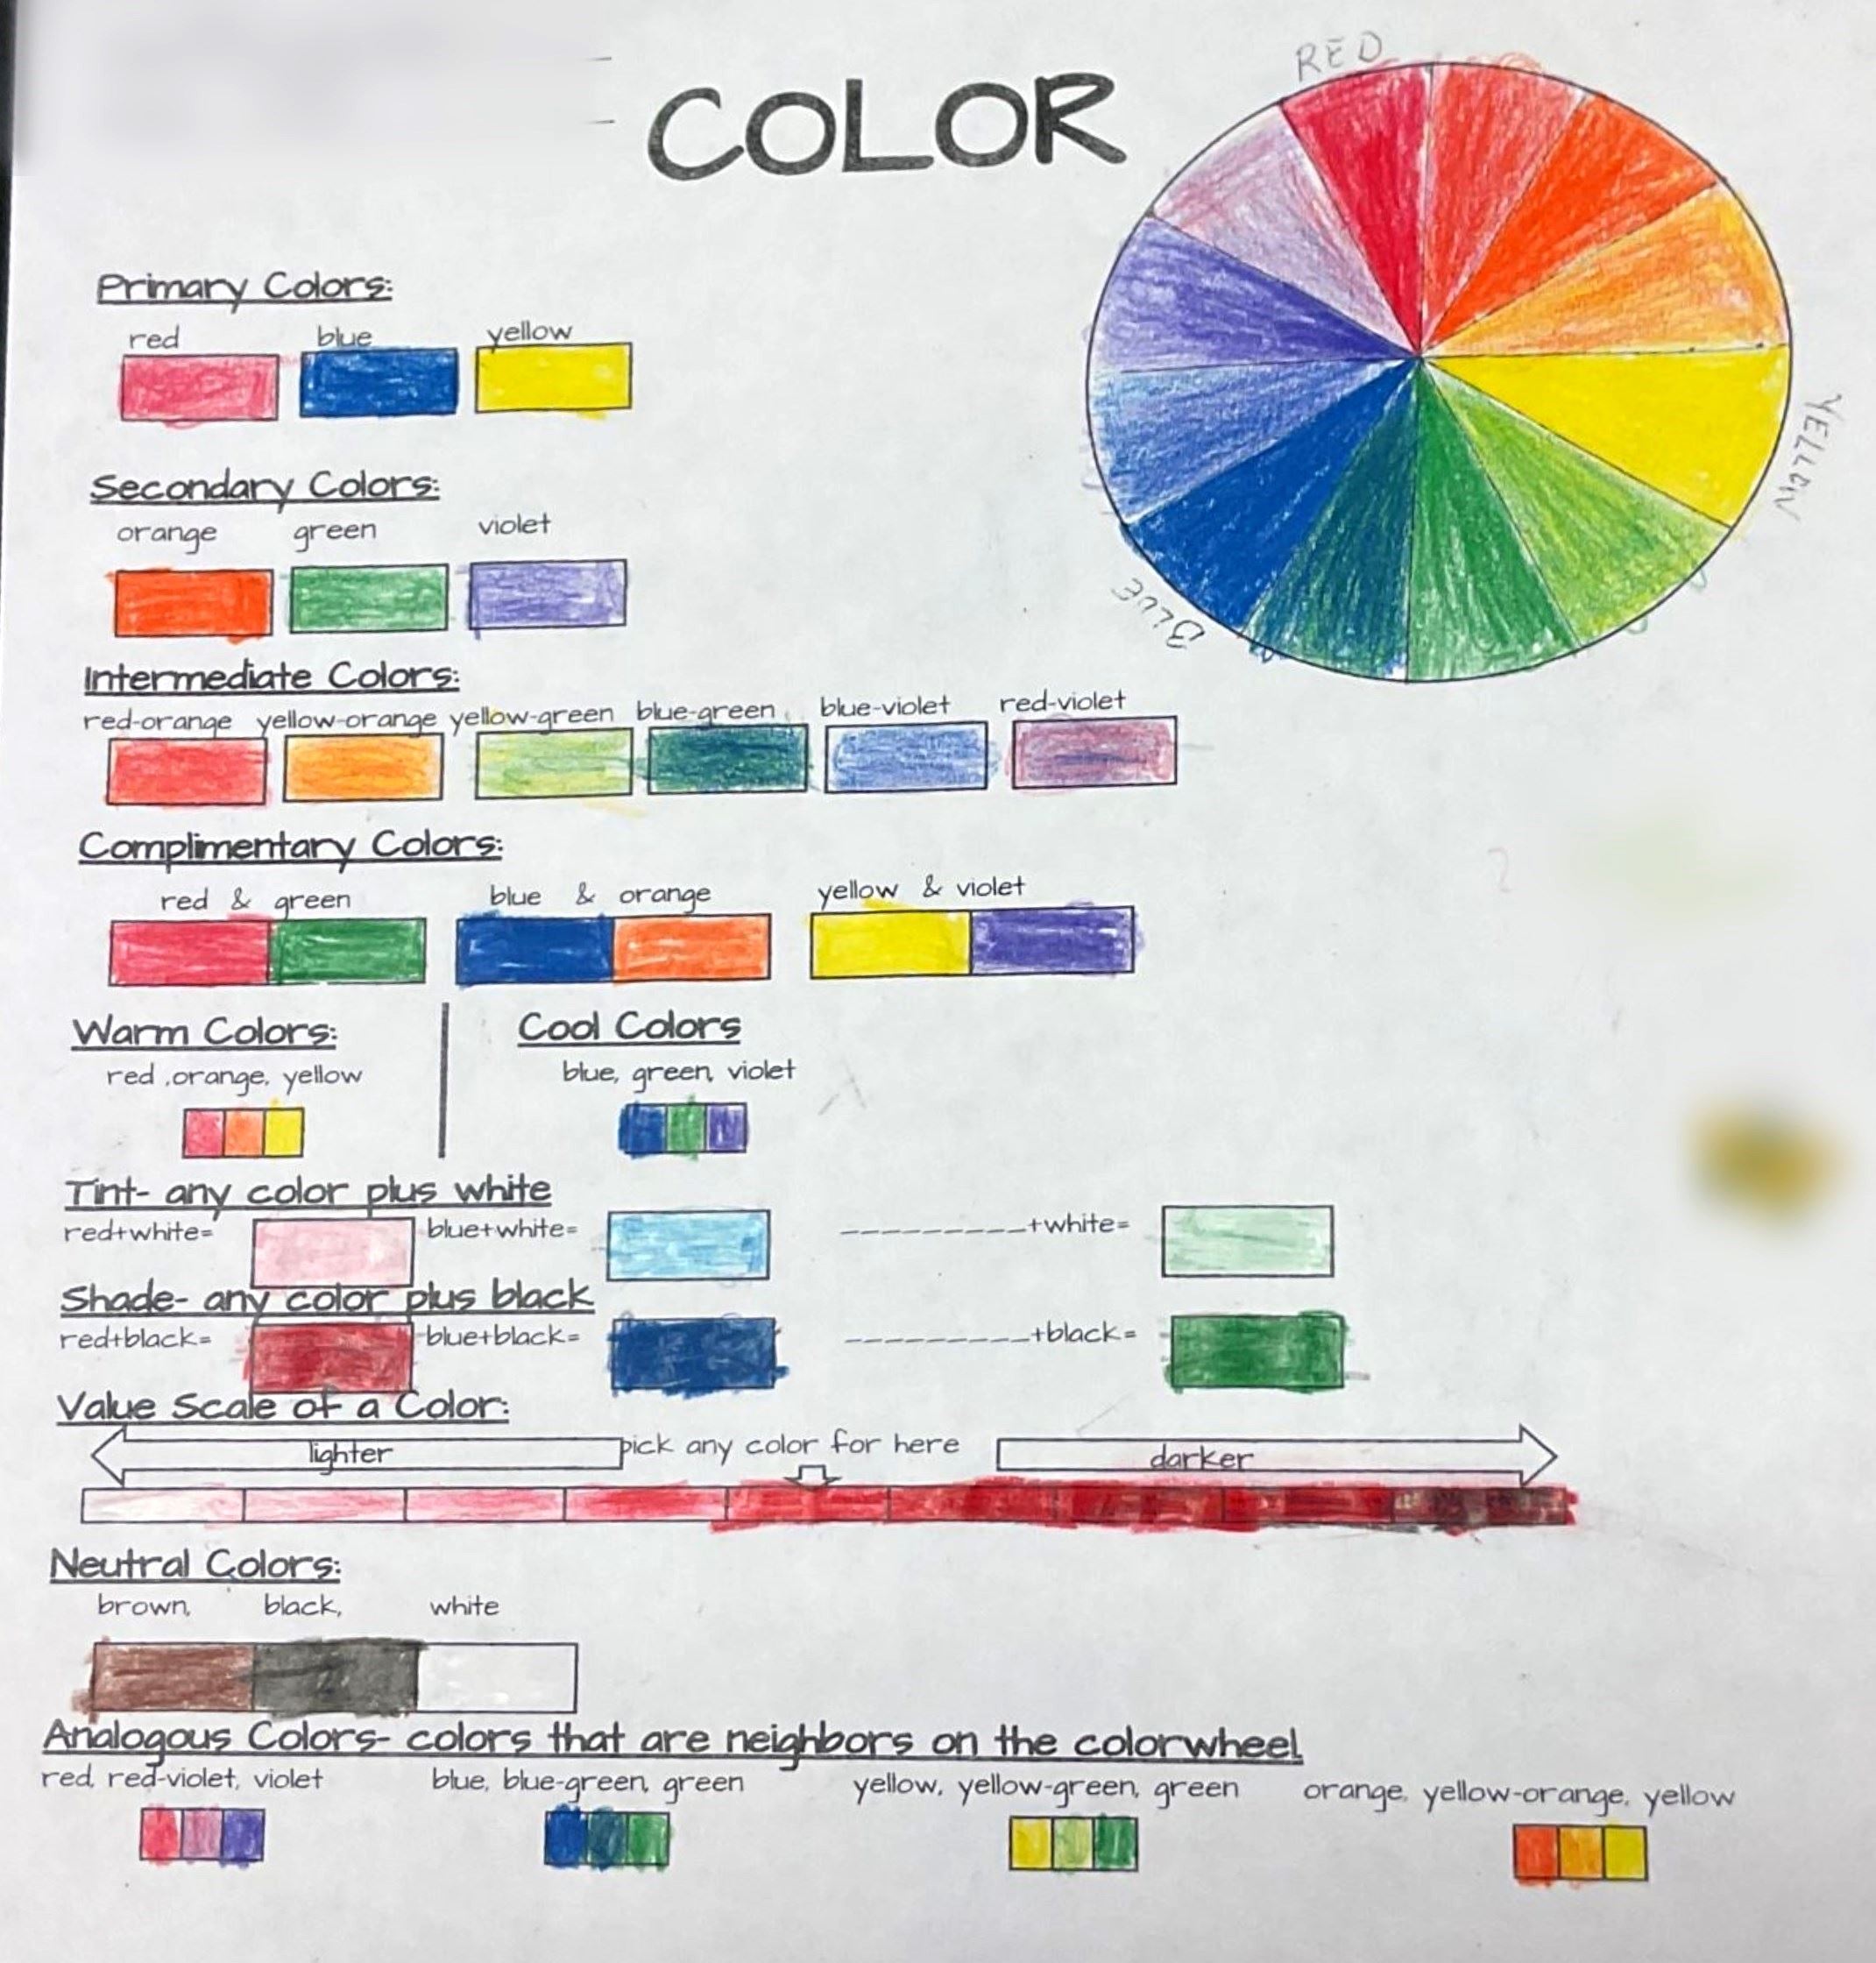 COLOR
RED
YELLOW
BLUE
Primary Colors:
red blue yellow
Secondary Colors:
orange green violet
Intermediate Colors:
red-orange yellow-orange yellow-green blue-green blue-violet red-violet
Complimentary Colors:
red & green blue & orange yellow & violet
Warm Colors: Cool Colors
red ,orange, yellow blue, green, violet
Tint- any color plus white
red+white= blue+white= _________+white=
Shade- any color plus black
red+black= blue+black= _________+black=
Value Scale of a Color:
lighter pick any color for here darker
Neutral Colors:
brown, black, white
Analogous Colors- colors that are neighbors on the colorwheel
red, red-violet, violet blue, blue-green, green yellow, yellow-green, green orange, yellow-orange, yellow